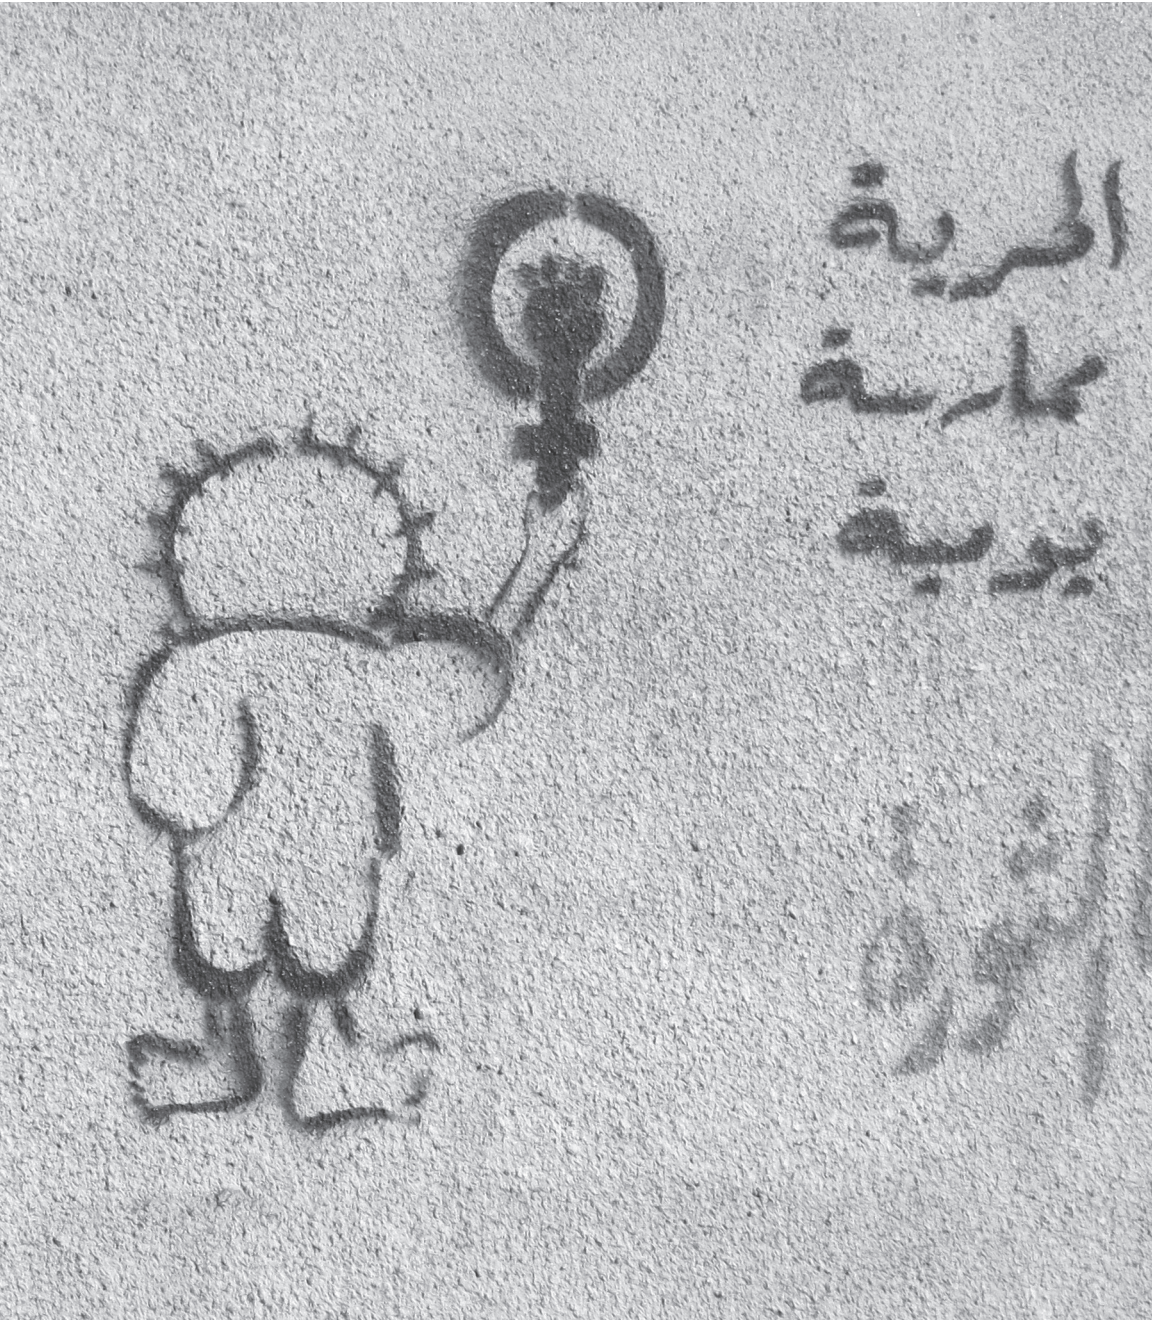 الحرية
ممارسة
يومية
الثورة